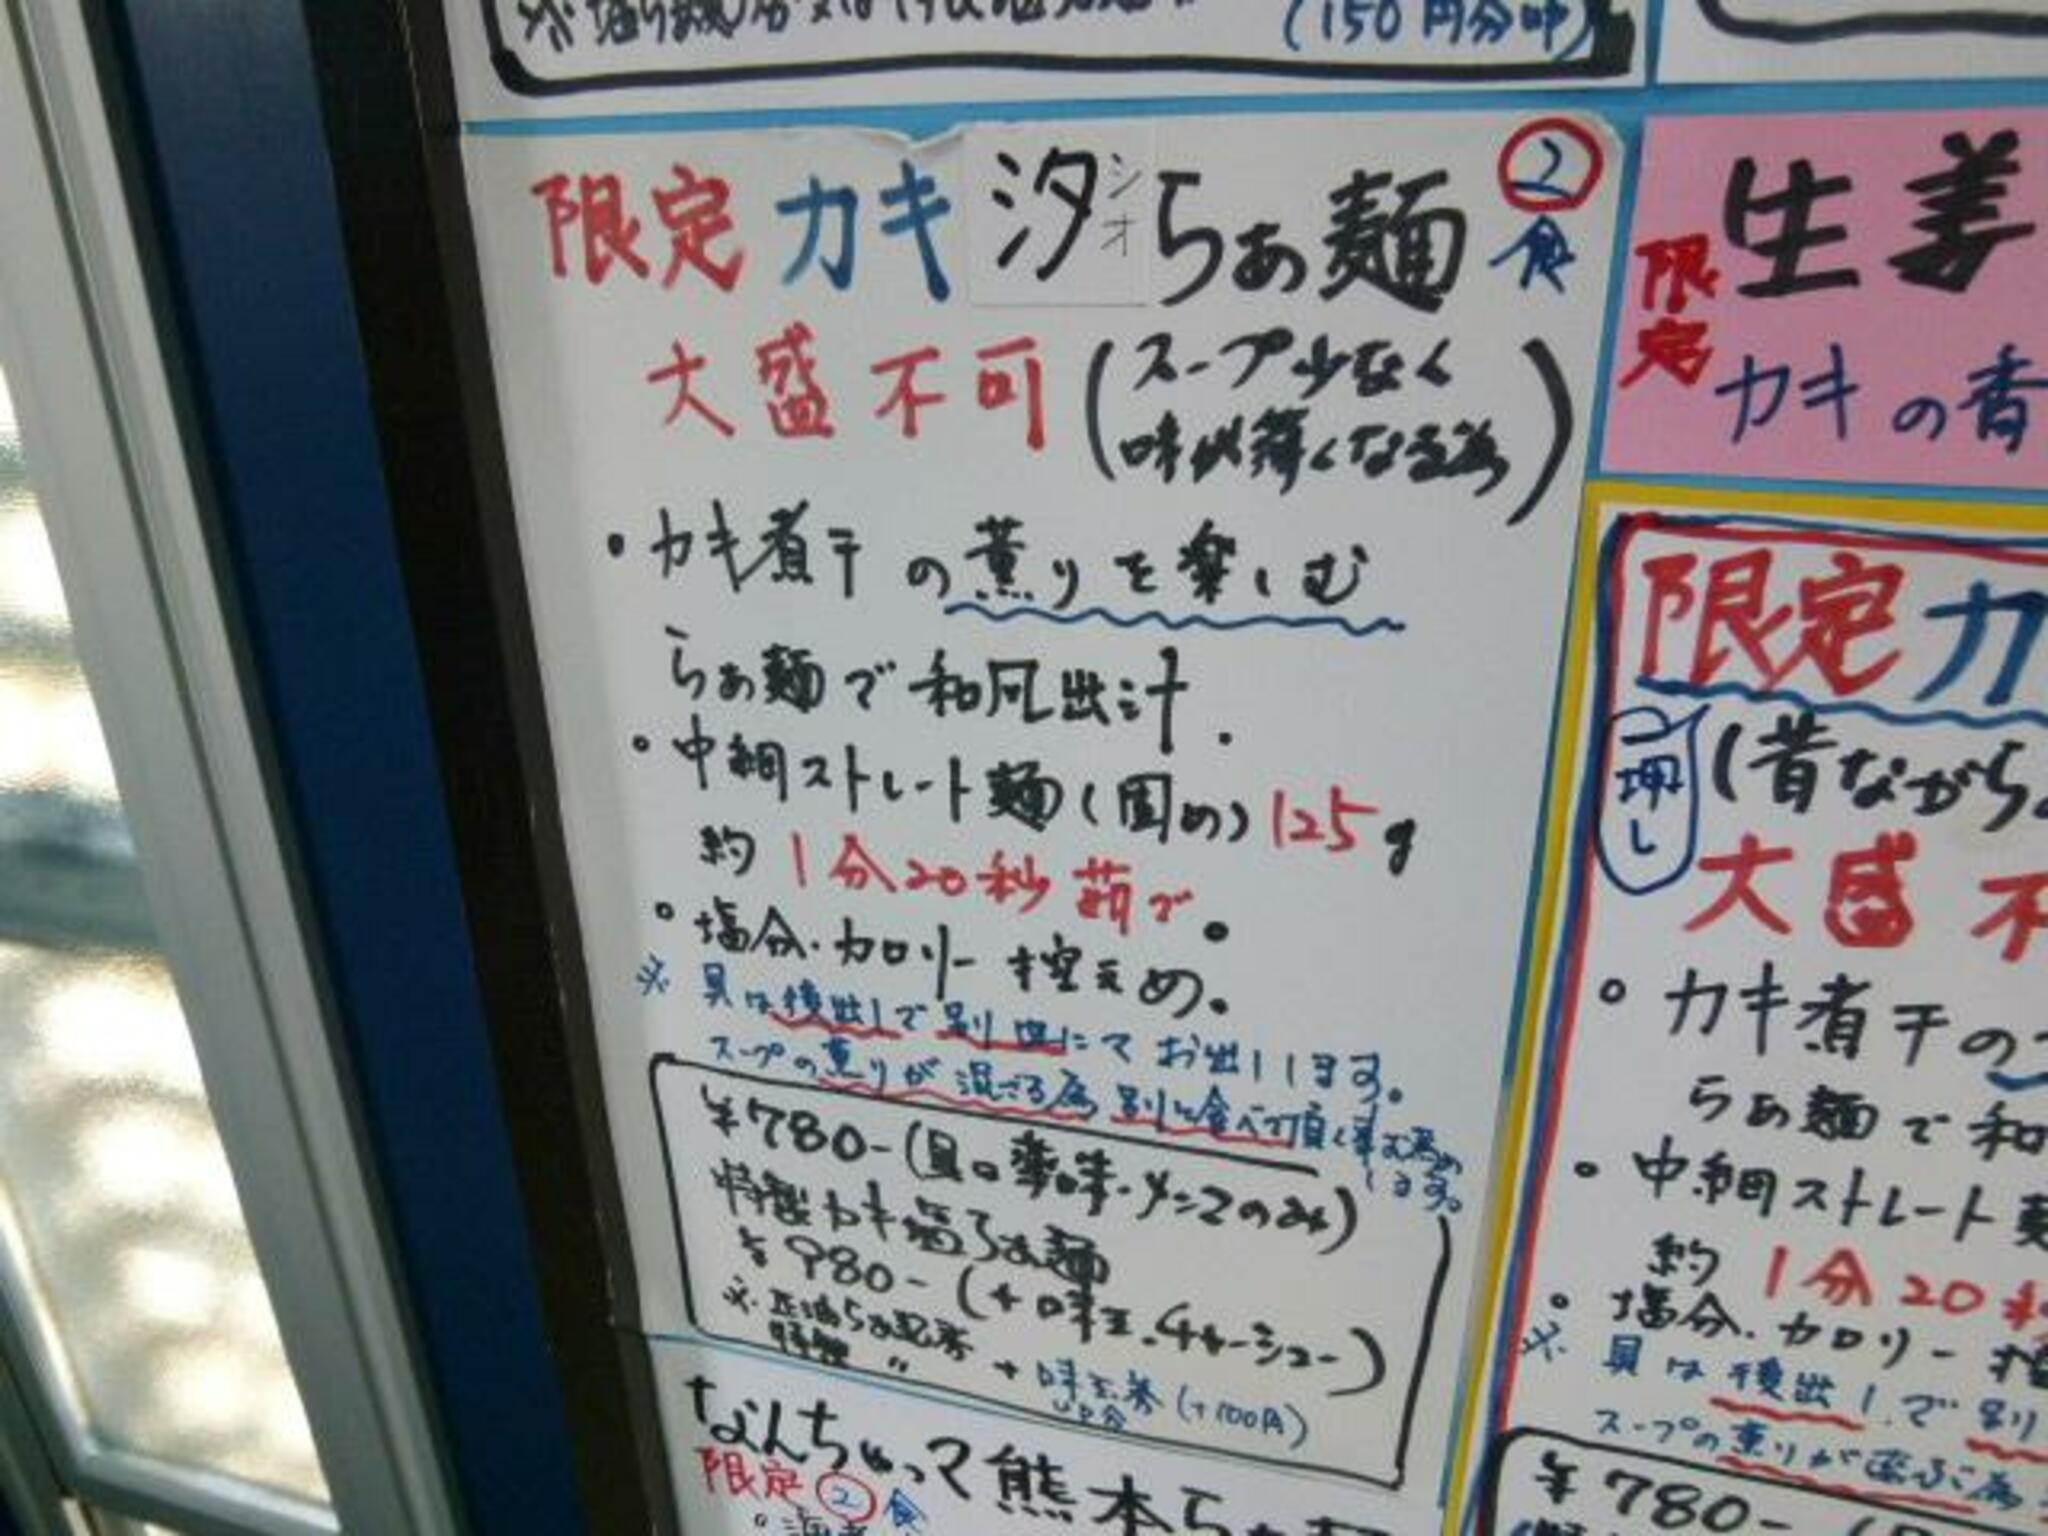 (150円分
限定 カキ 汐 らぁ麺 ② 食
シオ
大盛不可 (スープ少なく
味が薄くなる為)
・カキ煮干の薫りを楽しむ
らぁ麺で和風出汁.
・中細ストレート麺(固め)125g
約1分20秒茹で。
・塩分.カロリー控えめ。
※ 具は後出しで別皿にてお出しします。
スープの薫りが混ざる為 別に食べて頂く事
¥780-(具の薬味.メンマのみ)
特製カキ塩らぁ麺
¥980-(+味玉.チャーシュー)
特製 〃 + 味玉券 (+100円)
なんちゃって熊本らぁ麺
限定 ② 食
限定
生姜
カキの香
限定カ
押し
(昔ながら
大盛不
・カキ煮干の
らぁ麺で和
・中細ストレート
約1分20
・塩分.カロリー
※ 具は後出しで別
スープの薫りが
¥780-